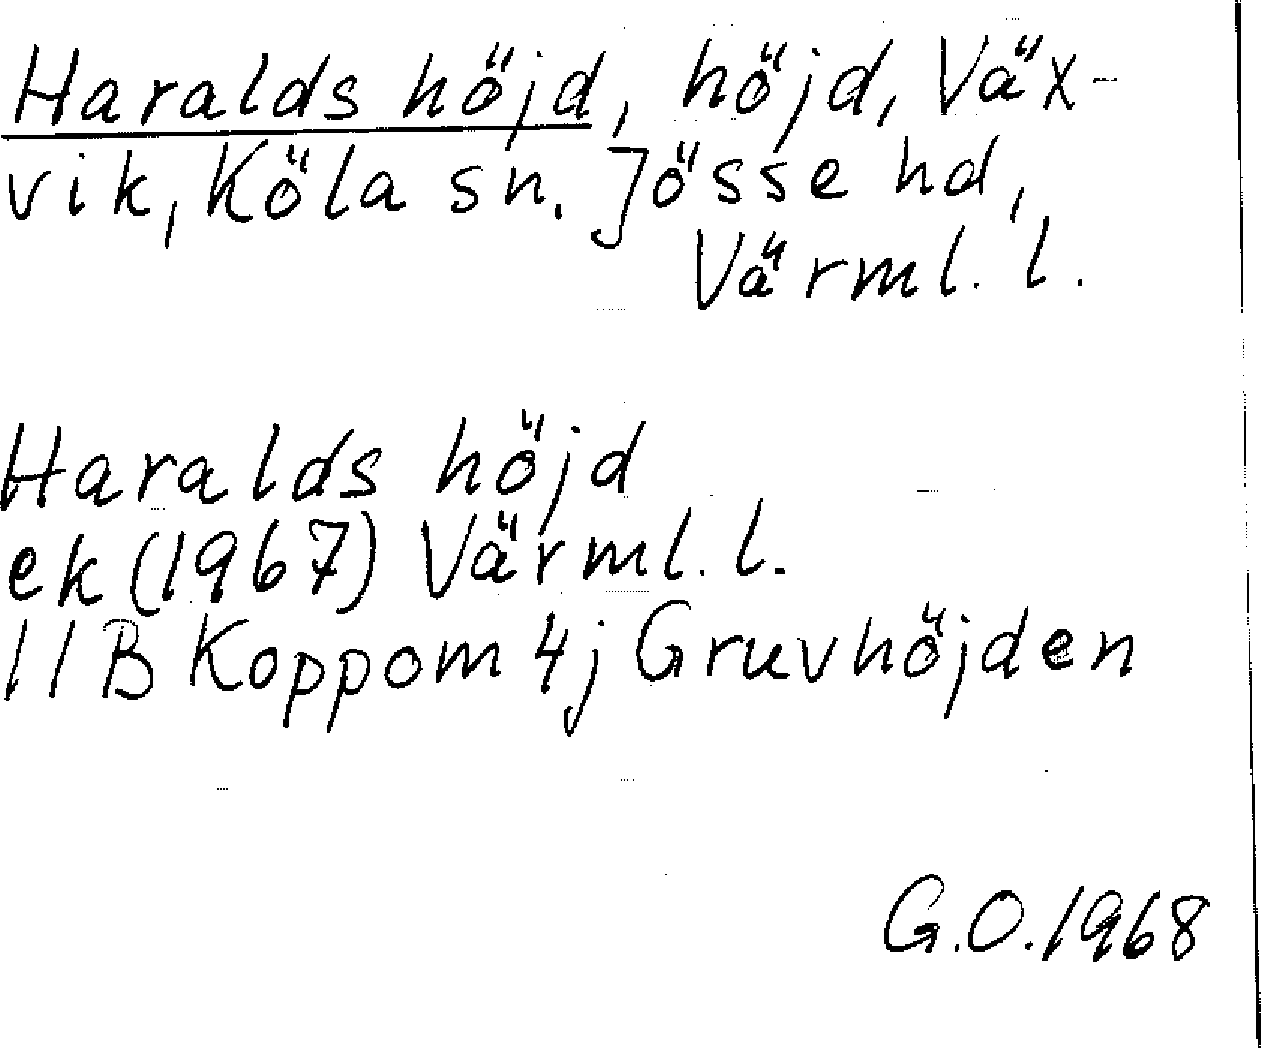 Haralds höjd, höjd, Väx-
vik, Köla sn. Jösse hd,
Värml. l.
Haralds höjd
ek (1967) Värml. l.
11B Koppom 4j Gruvhöjden
G.O. 1968